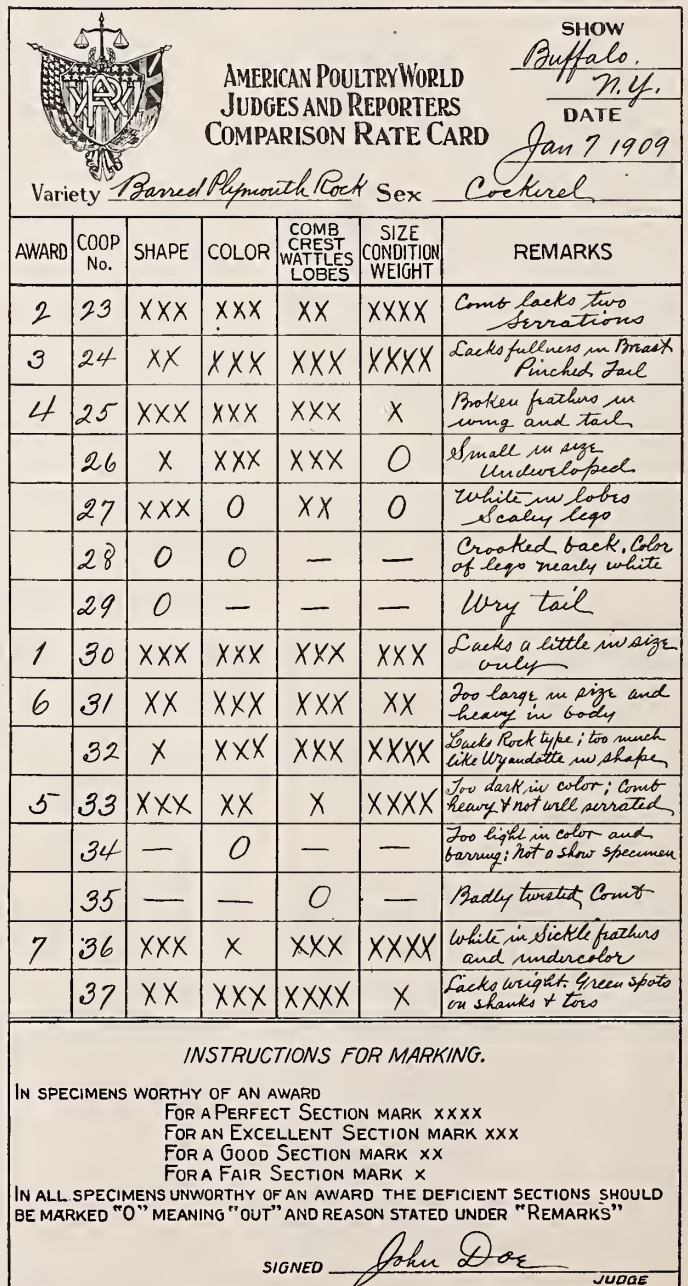 SHOW
Buffalo.
N.Y.
AMERICAN POULTRY WORLD
JUDGES AND REPORTERS
COMPARISON RATE CARD
DATE
Jan 7 1909
Variety Barred Plymouth Rock Sex Cockerel
AWARD COOP No. SHAPE COLOR COMB CREST WATTLES LOBES SIZE CONDITION WEIGHT REMARKS
2 23 XXX XXX XX XXXX Comb lacks two
Serrations
3 24 XX XXX XXX XXXX Lacks fullness in Breast
Pinched Tail
4 25 XXX XXX XXX X Broken feathers in
wing and tail
26 X XXX XXX O Small in size
Undeveloped
27 XXX O XX O White in lobes
Scaley legs
28 O O — — Crooked back. Color
of legs nearly white
29 O — — — Wry tail
1 30 XXX XXX XXX XXX Lacks a little in size
only
6 31 XX XXX XXX XX Too large in size and
heavy in body
32 X XXX XXX XXXX Lacks Rock type; too much
like Wyandotte in shape
5 33 XXX XX X XXXX Too dark in color; Comb
heavy & not well serrated
34 — O — — Too light in color and
barring; Not a show specimen
35 — — O — Badly twisted Comb
7 36 XXX X XXX XXXX White in Sickle feathers
and undercolor
37 XX XXX XXXX X Lacks weight. Green spots
on shanks & toes
INSTRUCTIONS FOR MARKING.
IN SPECIMENS WORTHY OF AN AWARD
FOR A PERFECT SECTION MARK XXXX
FOR AN EXCELLENT SECTION MARK XXX
FOR A GOOD SECTION MARK XX
FOR A FAIR SECTION MARK X
IN ALL SPECIMENS UNWORTHY OF AN AWARD THE DEFICIENT SECTIONS SHOULD
BE MARKED "O" MEANING "OUT" AND REASON STATED UNDER "REMARKS"
SIGNED John Doe
JUDGE